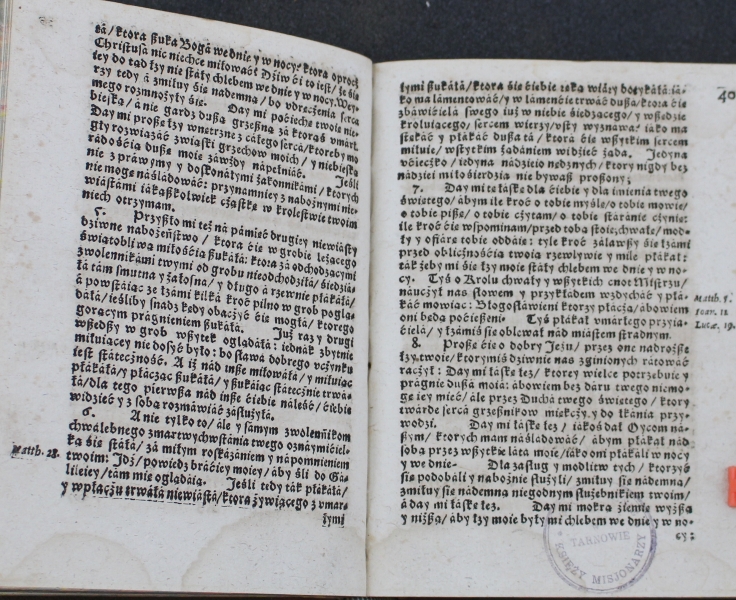 tá / ktora ßuka Bogá we dnie y w nocy: ktora oprocż
Christusa nic niechce miłowáć? Dźiw ći to iest / że śie
iey do tąd łzy nie stáły chlebem we dnie y w nocy. Wey-
rzy tedy á zmiłuy śie nademną / bo vdręcżenia sercá
mego rozmnożyły śie. Day mi poćiechę twoię nie-
bieską / á nie gardź dußą grzeßną zá ktorąś vmarł.
Day mi proßę łzy wnętrzne z cáłego sercá / ktoreby mo-
gły rozwiązáć zwiąski grzechow moich / y niebieską
rádośćią dußę moię záwżdy nápełniáć. Jeśli
nie z práwymi y doskonáłymi zakonnikámi / ktorych
nie mogę náśládowáć: przynamniey z nabożnymi nie-
wiástámi iákążkolwiek cżąstkę w krolestwie twoim
niech otrzymam.
5. Przyßło mi też ná pámięć drugiey niewiásty
dźiwne nabożeństwo / ktora ćie w grobie leżącego
świątobliwą miłośćią ßukáłá: ktora zá odchodzącymi
zwolennikámi twymi od grobu nieodchodźiłá / śiedźiá-
łá tám smutna y żáłosna / y długo á rzewnie płákáłá /
á powstáiąc ze łzámi kilká kroć pilno w grob poglą-
dáłá / ieśliby snadź kędy obacżyć ćię mogłá / ktorego
gorącym prágnieniem ßukáłá. Już raz y drugi
wßedßy w grob wßytek oglądáłá: iednak zbytnie
miłuiącey nie dosyć było: bo sława dobrego vcżynku
iest státecżność. A iż nád inße miłowáłá / y miłuiąc
płákáłá / y płacżąc ßukáłá / y ßukáiąc státecżnie trwá-
łá / dla tego pierwßa nád inße ćiebie náleść / ćiebie
widźieć y z sobą rozmáwiáć zásłużyłá.
6. A nie tylko to / ále y sámym zwolennikom
chwálebnego zmartwychwstánia twego oznáymićiel-
ką śie stáłá / zá miłym roskazániem y nápomnieniem
Matth. 28.
twoim: Jdź / powiedz bráćiey moiey / áby ßli do Gá-
lileiey / tám mię oglądáią. Jeśli tedy ták płákáłá /
y w płácżu trwáłá niewiástá / ktora żywiącego z vmar-
łymi
40
łymi ßukáłá / ktora śie ćiebie ręką wiáry dotykáłá: iá-
ko ma lámentowáć / y w lámenćie trwáć dußá / ktora ćie
zbáwićielá swego iuż w niebie śiedzącego / y wßędźie
kroluiącego / sercem wierzy / vsty wyznawa: iáko ma
stękáć y płákáć dußá tá / ktora ćie wßytkim sercem
miłuie / wßytkim żądániem widźieć żąda. Jedyna
vćiecżko / iedyna nádźieio nędznych / ktory nigdy bez
nádźiei miłośierdzia nie bywaß proßony;
7. Day mi tę łáskę dla ćiebie y dla imienia twego
świętego / ábym ile kroć o tobie myślę / o tobie mowię /
o tobie pißę / o tobie cżytam / o tobie stáránie cżynię:
ile kroć ćie wspominam / przed tobą stoię, chwałę / mod-
ły y ofiárę tobie oddáię: tyle kroć zálawßy śie łzámi
przed oblicżnośćią twoią rzewliwie y mile płákał:
ták żeby mi śie łzy moie stáły chlebem we dnie y w no-
cy. Tyś o Krolu chwały y wßytkich cnot Mistrzu /
náucżył nas słowem y przykłádem wzdycháć y płá-
Matth. 5.
káć mowiąc: Błogosłáwieni ktorzy płácżą / ábowiem
Ioan. 11.
oni będą poćießeni. Tyś płákał vmárłego przyia-
Lucæ. 19.
ćielá / y łzámiś śie oblewał nád miástem strádnym.
8. Proßę ćie o dobry Jezu / przez one nadroższe
łzy twoie / ktorymiś dźiwnie nas zginionych rátowáć
racżył: Day mi łáskę łez / ktorey wielce potrzebuie y
prágnie dußá moiá: ábowiem bez dáru twego niemo-
gę iey mieć / ále przez Duchá twego świętego / ktory
twárde sercá grzeßnikow miękcży. y do łkánia przy-
wodźi. Day mi łáskę łez / iákoś dał Oycom ná-
ßym / ktorych mam náśládowáć / ábym płákał nád
sobą przez wßytkie látá moie / iáko oni płákáli w nocy
y we dnie. Dla zasług y modlitw tych / ktorzyć
śie podobáli y nabożnie służyli / zmiłuy śie nademną /
zmiłuy śie nádemną niegodnym służebnikiem twoim /
á day mi łáskę łez. Day mi mokrą źiemię wyżßą
y niżßą / áby łzy moie były mi chlebem we dnie y w no-
cy:
TARNOWIE
KSIĘŻY MISJONARZY